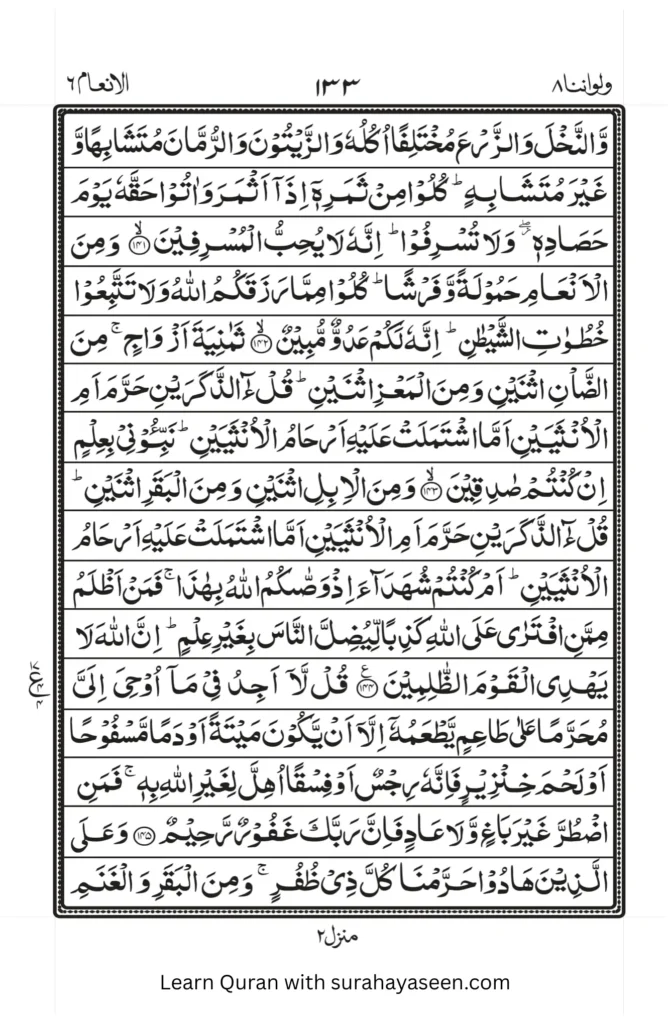 ولواننا ٨ ١٣٣ الانعام ٦
وَّالنَّخْلَ وَالزَّرْعَ مُخْتَلِفًا اُكُلُهٗ وَالزَّيْتُوْنَ وَالرُّمَّانَ مُتَشَابِهًا وَّ
غَيْرَ مُتَشَابِهٍ ؕ كُلُوْا مِنْ ثَمَرِهٖۤ اِذَاۤ اَثْمَرَ وَاٰتُوْا حَقَّهٗ يَوْمَ
حَصَادِهٖ ۖ وَلَا تُسْرِفُوْا ؕ اِنَّهٗ لَا يُحِبُّ الْمُسْرِفِيْنَ ۙ﴿۱۴۱﴾ وَمِنَ
الْاَنْعَامِ حَمُوْلَةً وَّفَرْشًا ؕ كُلُوْا مِمَّا رَزَقَكُمُ اللّٰهُ وَلَا تَتَّبِعُوْا
خُطُوٰتِ الشَّيْطٰنِ ؕ اِنَّهٗ لَكُمْ عَدُوٌّ مُّبِيْنٌ ۙ﴿۱۴۲﴾ ثَمٰنِيَةَ اَزْوَاجٍ ۚ مِنَ
الضَّاْنِ اثْنَيْنِ وَمِنَ الْمَعْزِ اثْنَيْنِ ؕ قُلْ ءٰٓالذَّكَرَيْنِ حَرَّمَ اَمِ
الْاُنْثَيَيْنِ اَمَّا اشْتَمَلَتْ عَلَيْهِ اَرْحَامُ الْاُنْثَيَيْنِ ؕ نَبِّـُٔوْنِيْ بِعِلْمٍ
اِنْ كُنْتُمْ صٰدِقِيْنَ ۙ﴿۱۴۳﴾ وَمِنَ الْاِبِلِ اثْنَيْنِ وَمِنَ الْبَقَرِ اثْنَيْنِ ؕ
قُلْ ءٰٓالذَّكَرَيْنِ حَرَّمَ اَمِ الْاُنْثَيَيْنِ اَمَّا اشْتَمَلَتْ عَلَيْهِ اَرْحَامُ
الْاُنْثَيَيْنِ ؕ اَمْ كُنْتُمْ شُهَدَآءَ اِذْ وَصّٰىكُمُ اللّٰهُ بِهٰذَا ۚ فَمَنْ اَظْلَمُ
مِمَّنِ افْتَرٰى عَلَى اللّٰهِ كَذِبًا لِّيُضِلَّ النَّاسَ بِغَيْرِ عِلْمٍ ؕ اِنَّ اللّٰهَ لَا
يَهْدِى الْقَوْمَ الظّٰلِمِيْنَ ۠﴿۱۴۴﴾ قُلْ لَّاۤ اَجِدُ فِيْ مَاۤ اُوْحِيَ اِلَيَّ
مُحَرَّمًا عَلٰى طَاعِمٍ يَّطْعَمُهٗۤ اِلَّاۤ اَنْ يَّكُوْنَ مَيْتَةً اَوْ دَمًا مَّسْفُوْحًا
اَوْ لَحْمَ خِنْزِيْرٍ فَاِنَّهٗ رِجْسٌ اَوْ فِسْقًا اُهِلَّ لِغَيْرِ اللّٰهِ بِهٖ ۚ فَمَنِ
اضْطُرَّ غَيْرَ بَاغٍ وَّلَا عَادٍ فَاِنَّ رَبَّكَ غَفُوْرٌ رَّحِيْمٌ ﴿۱۴۵﴾ وَعَلَى
الَّذِيْنَ هَادُوْا حَرَّمْنَا كُلَّ ذِيْ ظُفُرٍ ۚ وَمِنَ الْبَقَرِ وَالْغَنَمِ
منزل ٢
Learn Quran with surahayaseen.com